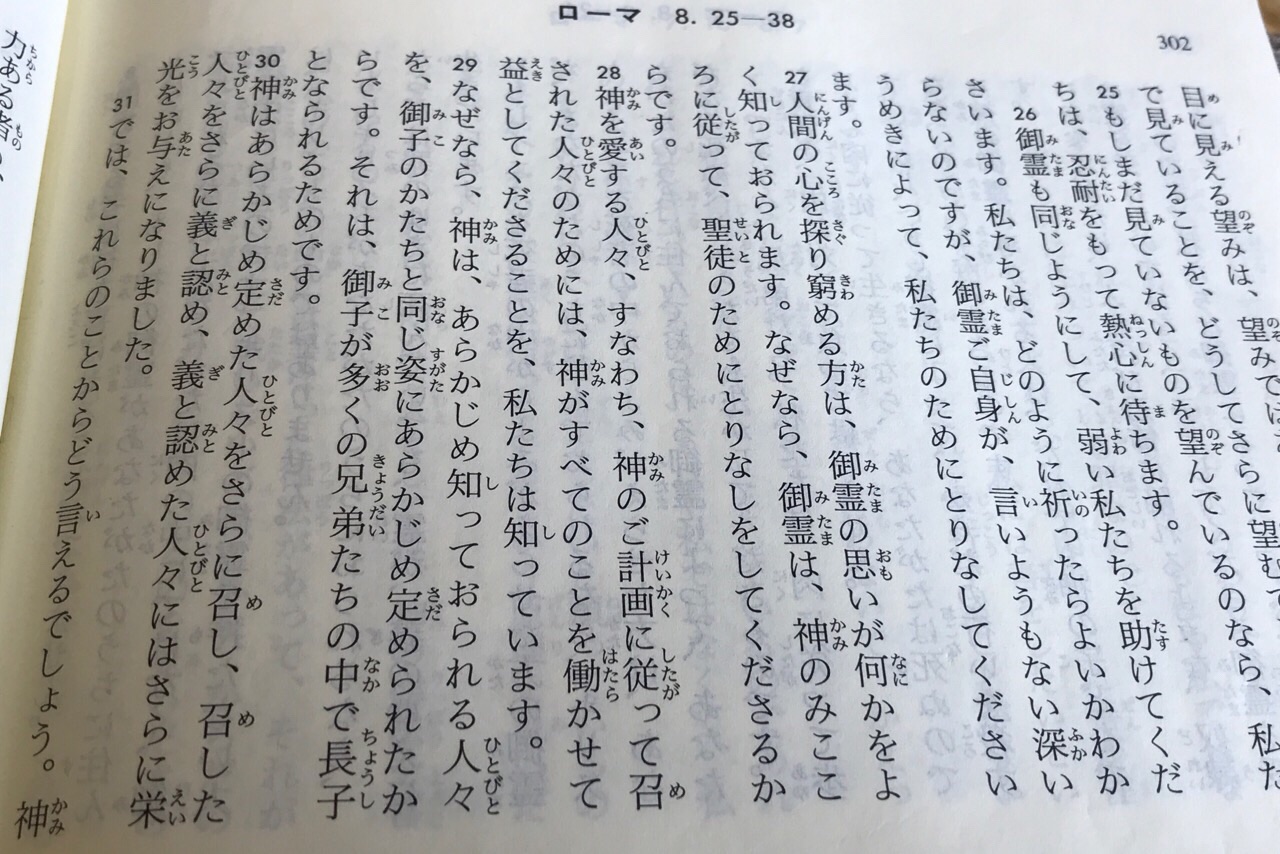 ローマ 8. 25—38
302
目に見える望みは、望みでは
で見ていることを、どうしてさらに望む
25 もしまだ見ていないものを望んでいるのなら、私た
ちは、忍耐をもって熱心に待ちます。
26 御霊も同じようにして、弱い私たちを助けてくだ
さいます。私たちは、どのように祈ったらよいかわか
らないのですが、御霊ご自身が、言いようもない深い
うめきによって、私たちのためにとりなしてください
ます。
27 人間の心を探り窮める方は、御霊の思いが何かをよ
く知っておられます。なぜなら、御霊は、神のみここ
ろに従って、聖徒のためにとりなしをしてくださるか
らです。
28 神を愛する人々、すなわち、神のご計画に従って召
された人々のためには、神がすべてのことを働かせて
益としてくださることを、私たちは知っています。
29 なぜなら、神は、あらかじめ知っておられる人々
を、御子のかたちと同じ姿にあらかじめ定められたか
らです。それは、御子が多くの兄弟たちの中で長子
となられるためです。
30 神はあらかじめ定めた人々をさらに召し、召した
人々をさらに義と認め、義と認めた人々にはさらに栄
光をお与えになりました。
31 では、これらのことからどう言えるでしょう。神
力ある者の、